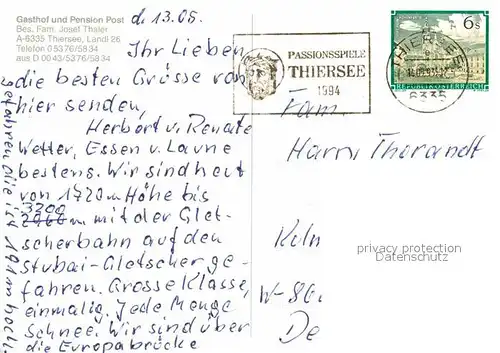 Gasthof und Pension Post
Bes. Fam. Josef Thaler
A-6335 Thiersee, Landl 26
Telefon 05376/5834
aus D 0043/5376/5834
d. 13.05.
Ihr Lieben,
die besten Grüsse von
hier senden,
Herbert u. Renate
Wetter, Essen u. Laune
bestens. Wir sind heut
von 1720 m Höhe bis
3200
m mit der Glet-
scherbahn auf den
Stubai-Gletscher ge-
fahren. Grosse Klasse,
einmalig. Jede Menge
Schnee. Wir sind über
die Europabrücke
gefahren die ist 191 m hoch.
PASSIONSSPIELE
THIERSEE
1994
6 S
REPUBLIK ÖSTERREICH
THIERSEE
6335
Fam.
Harry Thorandt
Köln
W-
De
privacy protection
Datenschutz